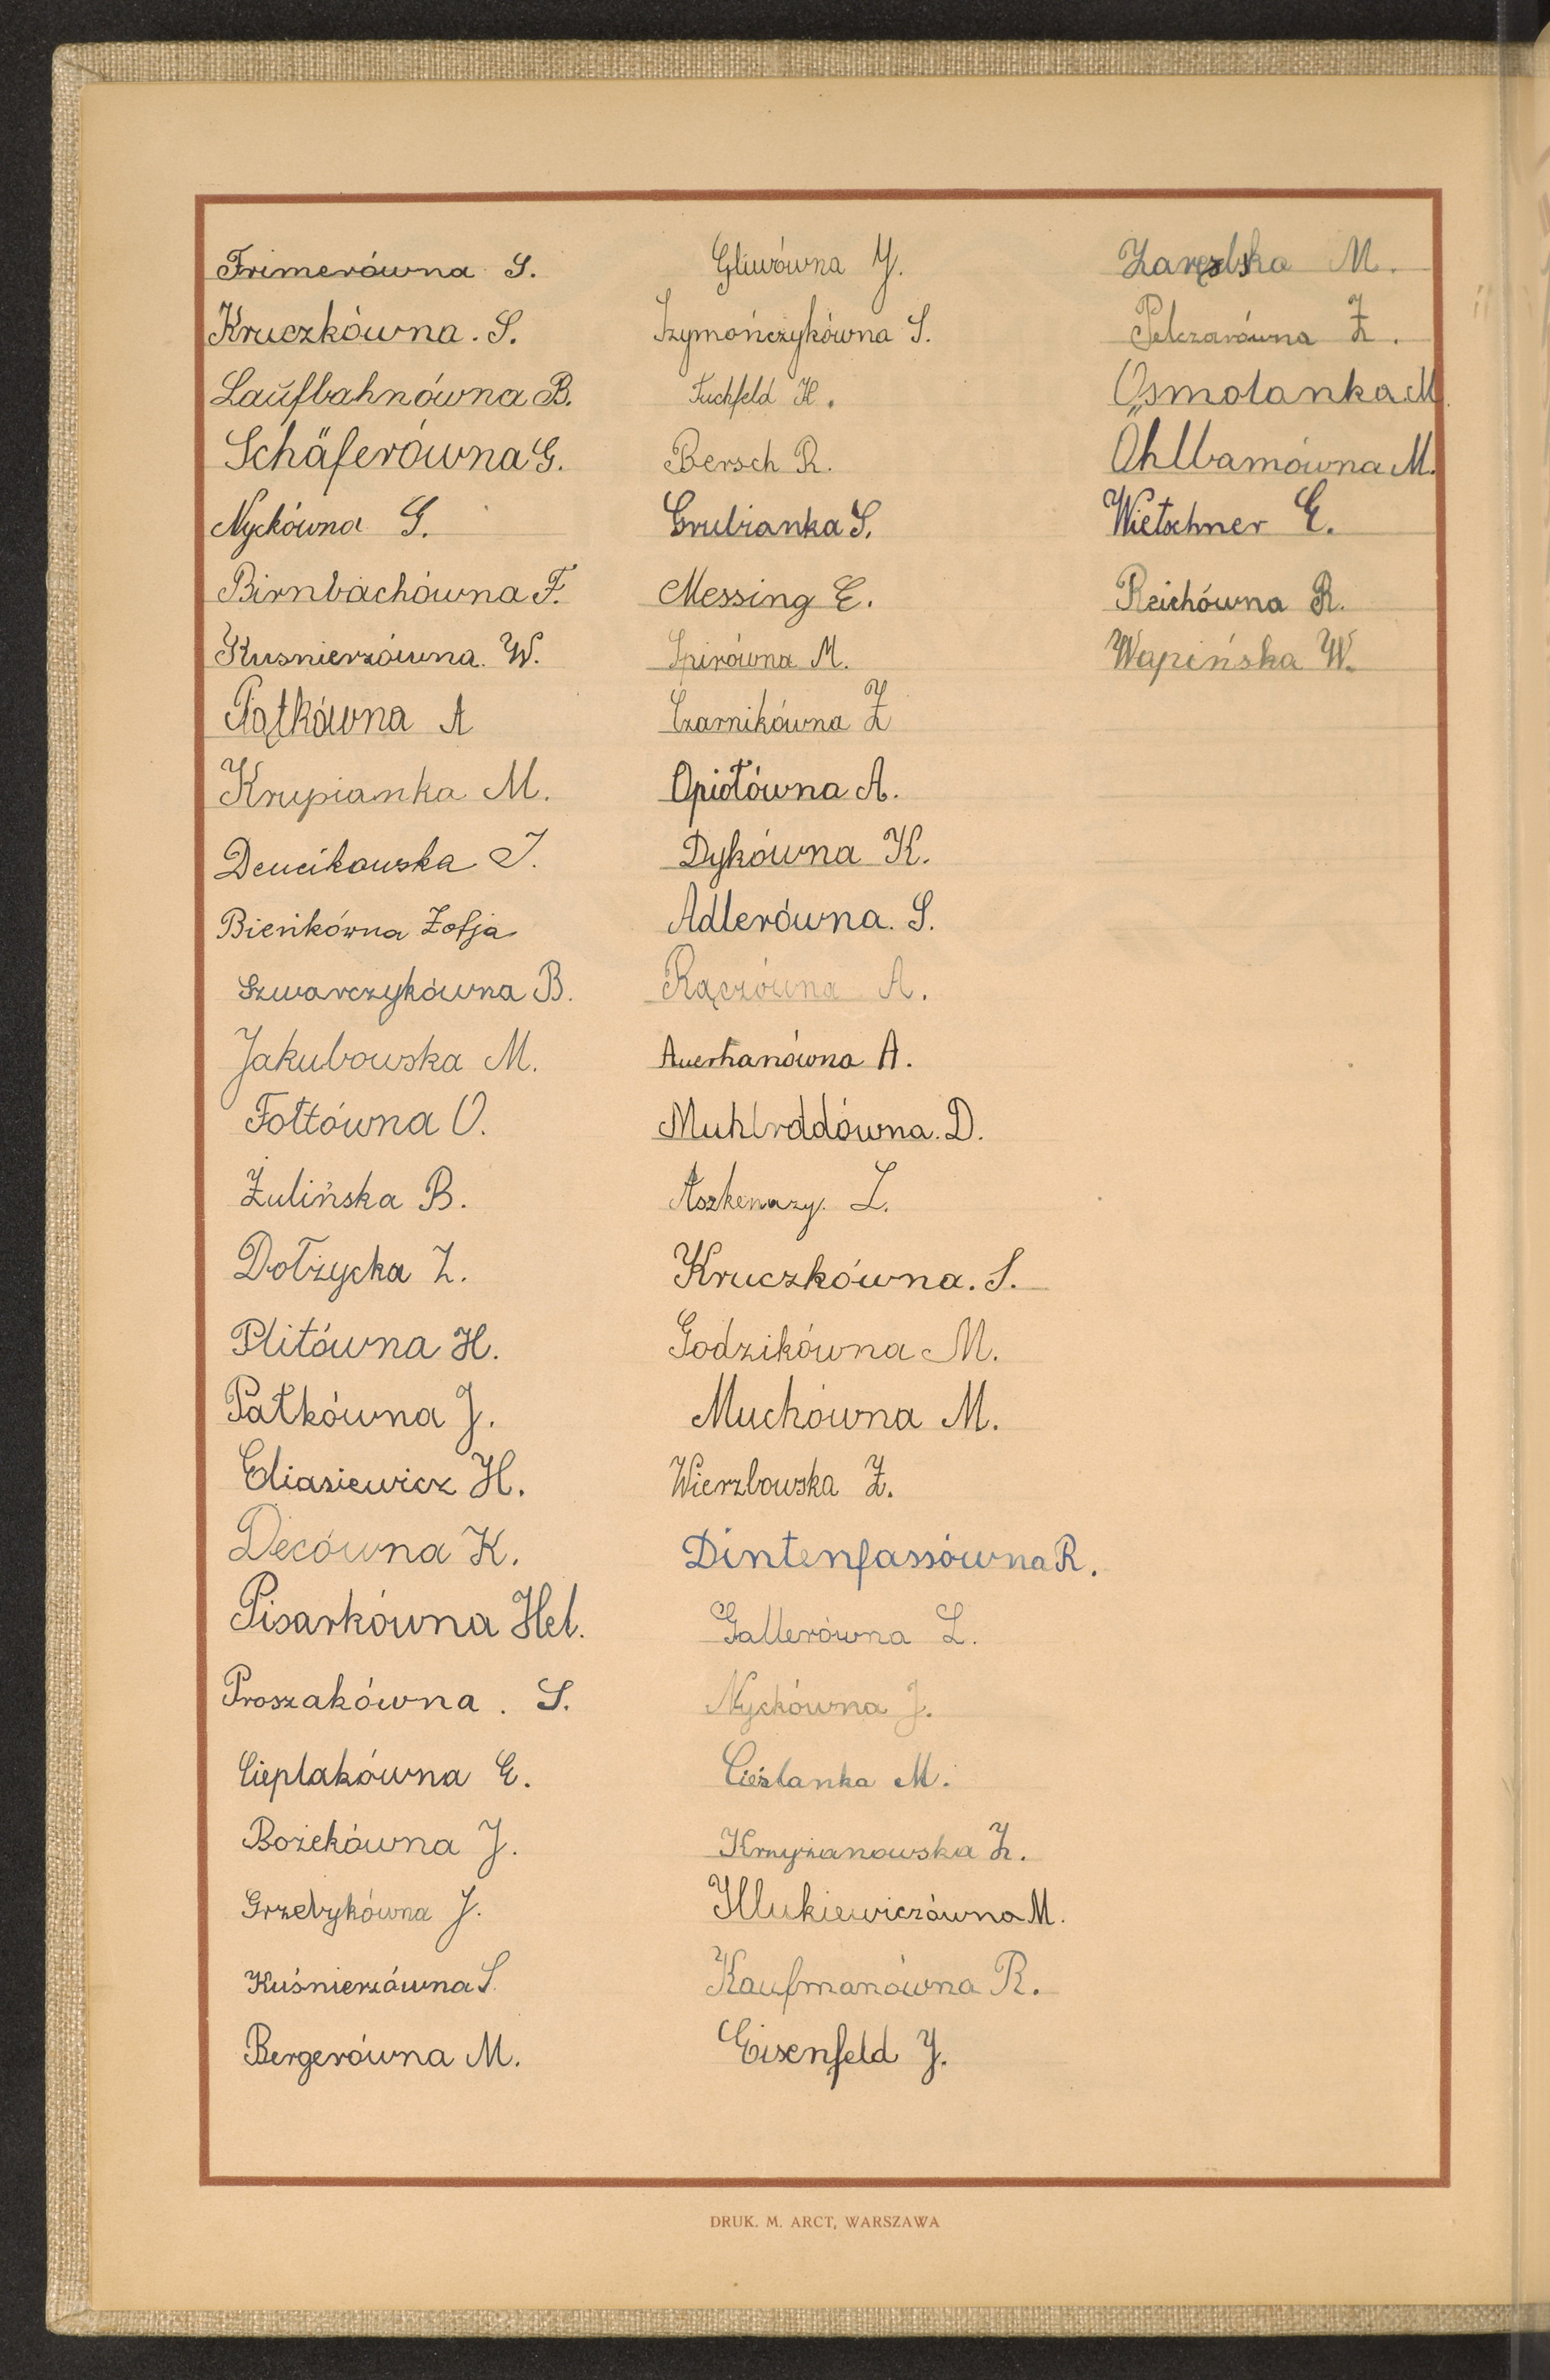 Frimerówna S.
Kruczkówna. S.
Laufbahnówna B.
Schäferówna G.
Nyckówna G.
Birnbachówna F.
Kusnierzówna. W.
Piątkówna A
Krupianka M.
Deucikowska J.
Bieńkówna Zofja
Szwarczykówna B.
Jakubowska M.
Fołtówna O.
Żulińska B.
Dołżycka Z.
Plitówna H.
Pałkówna J.
Eliasiewicz H.
Decówna K.
Pisarkówna Hel.
Proszakówna. S.
Cieplakówna E.
Bożekówna J.
Grzebykówna J.
Kuśnierzówna S.
Bergerówna M.
Gliwówna J.
Szymończykówna S.
Tuchfeld H.
Bersch R.
Grubianka S.
Messing E.
Spirówna M.
Czarnikówna Z
Opiołówna A.
Dykówna K.
Adlerówna. S.
Rączówna A.
Auerhanówna A.
Muhlrddówna. D.
Aszkenazy. L.
Kruczkówna. S.
Godzikówna M.
Muchówna M.
Wierzbowska Z.
Dintenfassówna R.
Gallerówna L.
Nyckówna J.
Cieślanka M.
Krzyżanowska Z.
Hlukiewiczówna M.
Kaufmanówna R.
Eisenfeld J.
Zarębska M.
Pelczarówna Z.
Osmolanka M.
Öhlbamówna M.
Wietschner E.
Reichówna R.
Wapińska W.
DRUK. M. ARCT, WARSZAWA